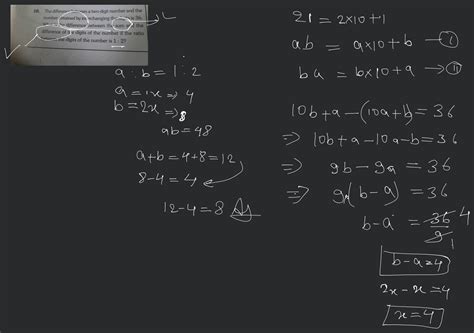 18. The difference between a two digit number and the
number obtained by interchanging the digits is 36.
difference between the sum and the
difference of the digits of the number if the ratio
digits of the number is 1 : 2?
L
a : b = 1 : 2
a = 1x ⇒ 4
b = 2x ⇒ 8
ab = 48
a+b = 4+8 = 12
8-4 = 4
12-4 = 8
21 = 2×10+1
ab = a×10+b → (I)
ba = b×10+a → (II)
10b+a-(10a+b) = 36
⇒ 10b+a-10a-b = 36
⇒ 9b-9a = 36
⇒ 9(b-a) = 36
b-a = 36/9 4
b-a=4
2x-x=4
x=4